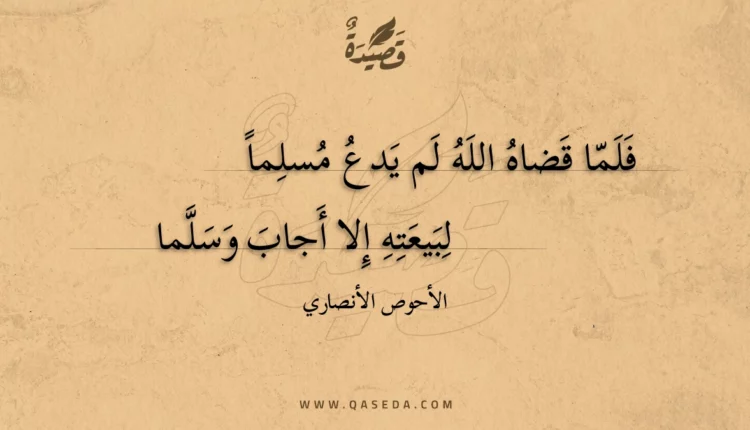 قَصِيْدَةٌ
فَلَمّا قَضاهُ اللَهُ لَم يَدعُ مُسلِماً
لِبَيعَتِهِ إِلا أَجابَ وَسَلَّما
الأحوص الأنصاري
WWW.QASEDA.COM